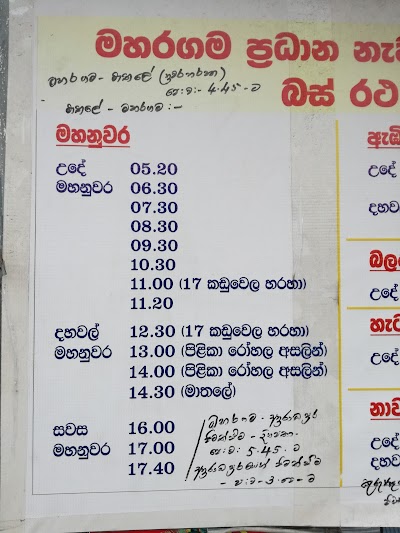 මහරගම ප්‍රධාන නැව
මහරගම - මාතලේ
පෙ:ව:- 4.45 - ට
බස් රථ
මාතලේ - මහරගම :-
මහනුවර
උදේ 05.20
මහනුවර 06.30
07.30
08.30
09.30
10.30
11.00 (17 කඩුවෙල හරහා)
11.20
දහවල් 12.30 (17 කඩුවෙල හරහා)
මහනුවර 13.00 (පිළිකා රෝහල අසලින්)
14.00 (පිළිකා රෝහල අසලින්)
14.30 (මාතලේ)
සවස 16.00
මහනුවර 17.00
17.40
මහරගම -
5.45 - ට
ඇඹි
උදේ
දහව
බල
උදේ
හැට
උදේ
නාව
උදේ
දහව